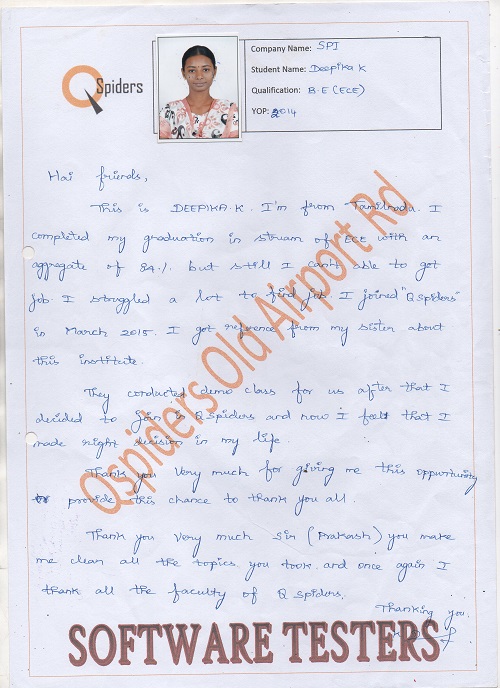 QSpiders
Company Name: SPI
Student Name: Deepika K
Qualification: B.E (ECE)
YOP: 2014
Hai friends,
This is DEEPIKA.K. I'm from Tamilnadu. I
completed my graduation in stream of ECE with an
aggregate of 84.%. but still I can't able to get
job. I struggled a lot to find job. I joined "Qspiders"
in March 2015. I got reference from my sister about
this institute.
They conducted demo class for us after that I
decided to join in QSpiders and now I feel that I
made right decision in my life.
Thank you very much for giving me this oppurtunity
to provide this chance to thank you all.
Thank you very much sir (Prakash) you make
me clear all the topics you took. and once again I
thank all the faculty of Q spiders.
Thanking you.
Qspiders Old Airport Rd
SOFTWARE TESTERS